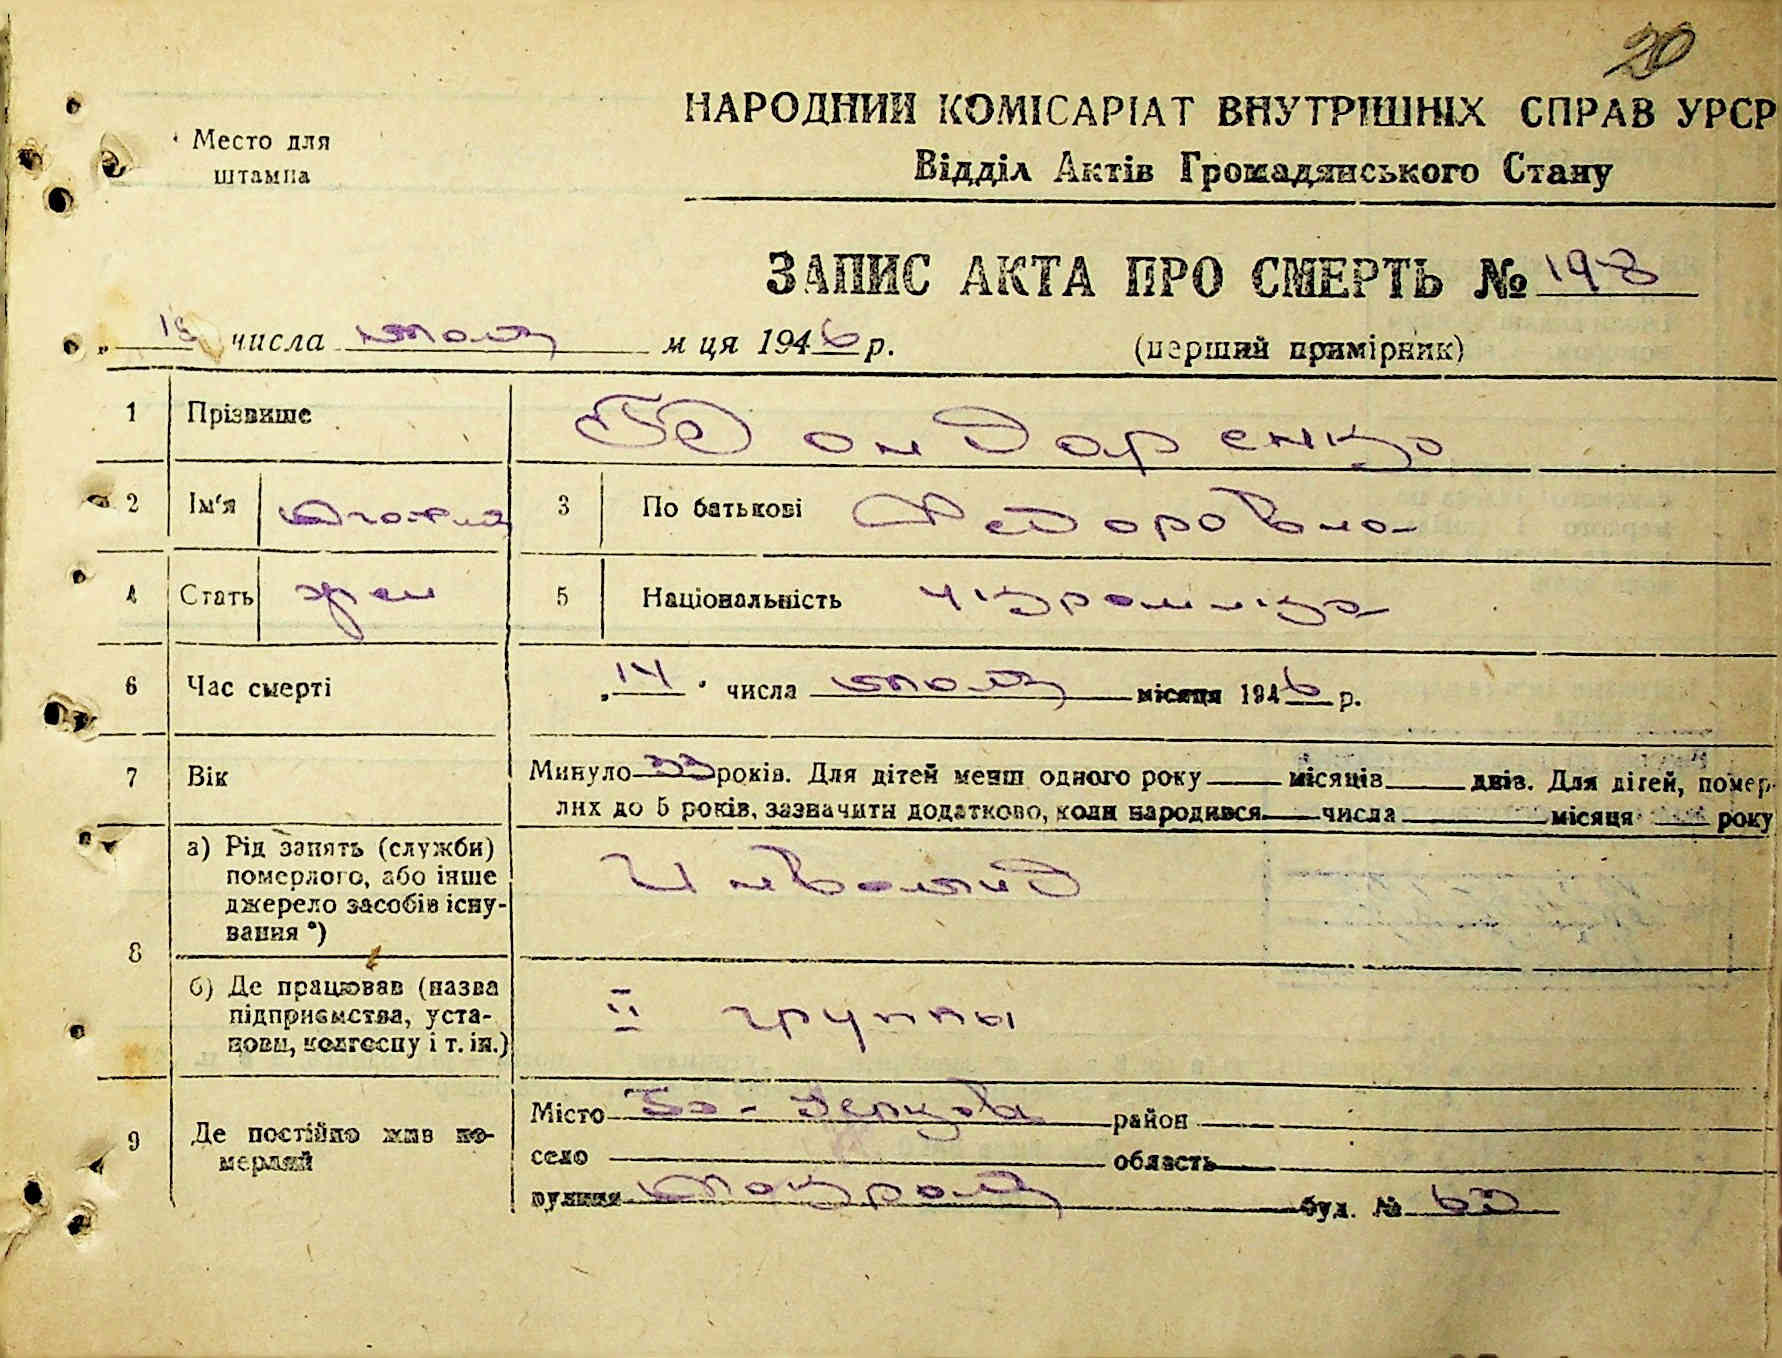 20
НАРОДНИЙ КОМІСАРІАТ ВНУТРІШНІХ СПРАВ УРСР
Место для
штампа
Відділ Актів Громадянського Стану
ЗАПИС АКТА ПРО СМЕРТЬ № 198
числа м ця 1946 р. (перший примірник)
1 Прізвище Бондаренко
2 Ім'я 3 По батькові Федоровна
4 Стать жен 5 Національність Украинка
6 Час смерті „14" числа місяця 1946 р.
7 Вік Минуло 33 років. Для дітей менш одного року місяців днів. Для дітей, помер-
лих до 5 років, зазначити додатково, коли народився числа місяця року
8 а) Рід занять (служби) померлого, або інше джерело засобів існування *) Инвалид
б) Де працював (назва підприємства, установи, колгоспу і т. ін.) II группы
9 Де постійно жив померлий Місто Б-Церква район
село область
вулиця буд. №